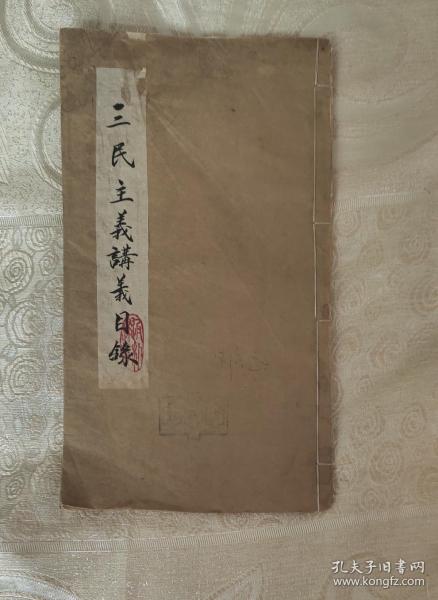 三民主義講義目錄
孔夫子旧书网
www.kongfz.com